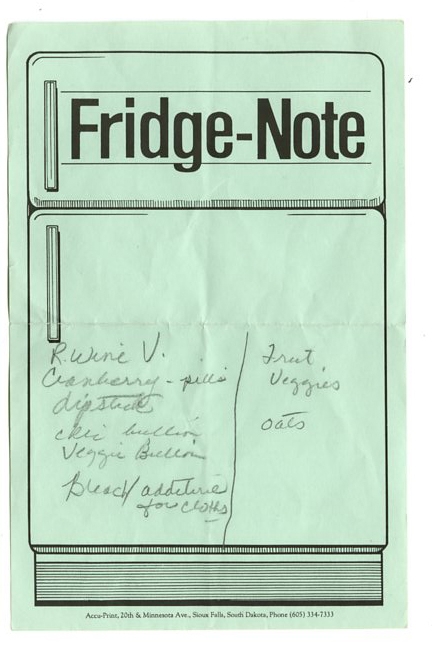 Fridge-Note
R. Wine V.
Cranberry - pills
dipstick
chic bullion
Veggie Bullion
Bleach additive
for cloths
Fruit
Veggies
oats
Accu-Print, 20th & Minnesota Ave., Sioux Falls, South Dakota, Phone (605) 334-7333